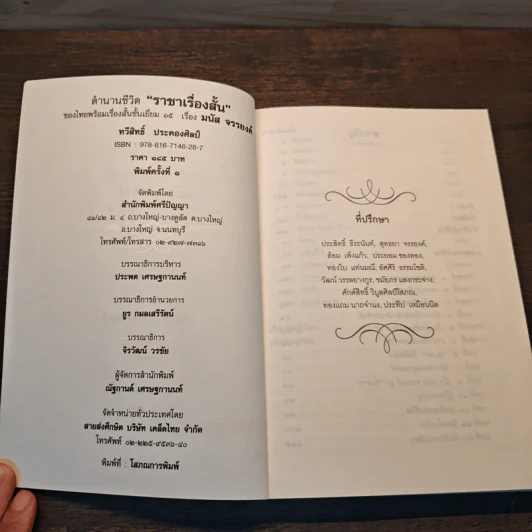 ตำนานชีวิต "ราชาเรื่องสั้น"
ของไทยพร้อมเรื่องสั้นชั้นเยี่ยม ๑๕ เรื่อง มนัส จรรยงค์
ทวีสิทธิ์ ประคองศิลป์
ISBN : 978-616-7146-28-7
ราคา ๑๘๕ บาท
พิมพ์ครั้งที่ ๑
จัดพิมพ์โดย
สำนักพิมพ์ศรีปัญญา
๔๖/๔๒ ม. ๔ ถ.บางใหญ่-บางคูลัด ต.บางใหญ่
อ.บางใหญ่ จ.นนทบุรี
โทรศัพท์/โทรสาร ๐๒-๔๒๗-๗๓๑๖
บรรณาธิการบริหาร
ประพต เศรษฐกานนท์
บรรณาธิการอำนวยการ
ยูร กมลเสรีรัตน์
บรรณาธิการ
จิรวัฒน์ วรชัย
ผู้จัดการสำนักพิมพ์
ณัฐกานต์ เศรษฐกานนท์
จัดจำหน่ายทั่วประเทศโดย
สายส่งศึกษิต บริษัท เคล็ดไทย จำกัด
โทรศัพท์ ๐๒-๒๒๕-๙๕๓๖-๔๐
พิมพ์ที่ : โสภณการพิมพ์
ที่ปรึกษา
ประสิทธิ์ ธีระนันท์, สุทธยา จรรยงค์,
อ้อม เพ็งแก้ว, ประยอม ซองทอง,
ทองใบ แท่นมณี, อัศศิริ ธรรมโชติ,
วัฒน์ วรรลยางกูร, ชมัยภร แสงกระจ่าง,
ศักดิ์สิทธิ์ วิบูลศิลป์โสภณ,
ทองแถม นาถจำนง, ประทีป เหมือนนิล